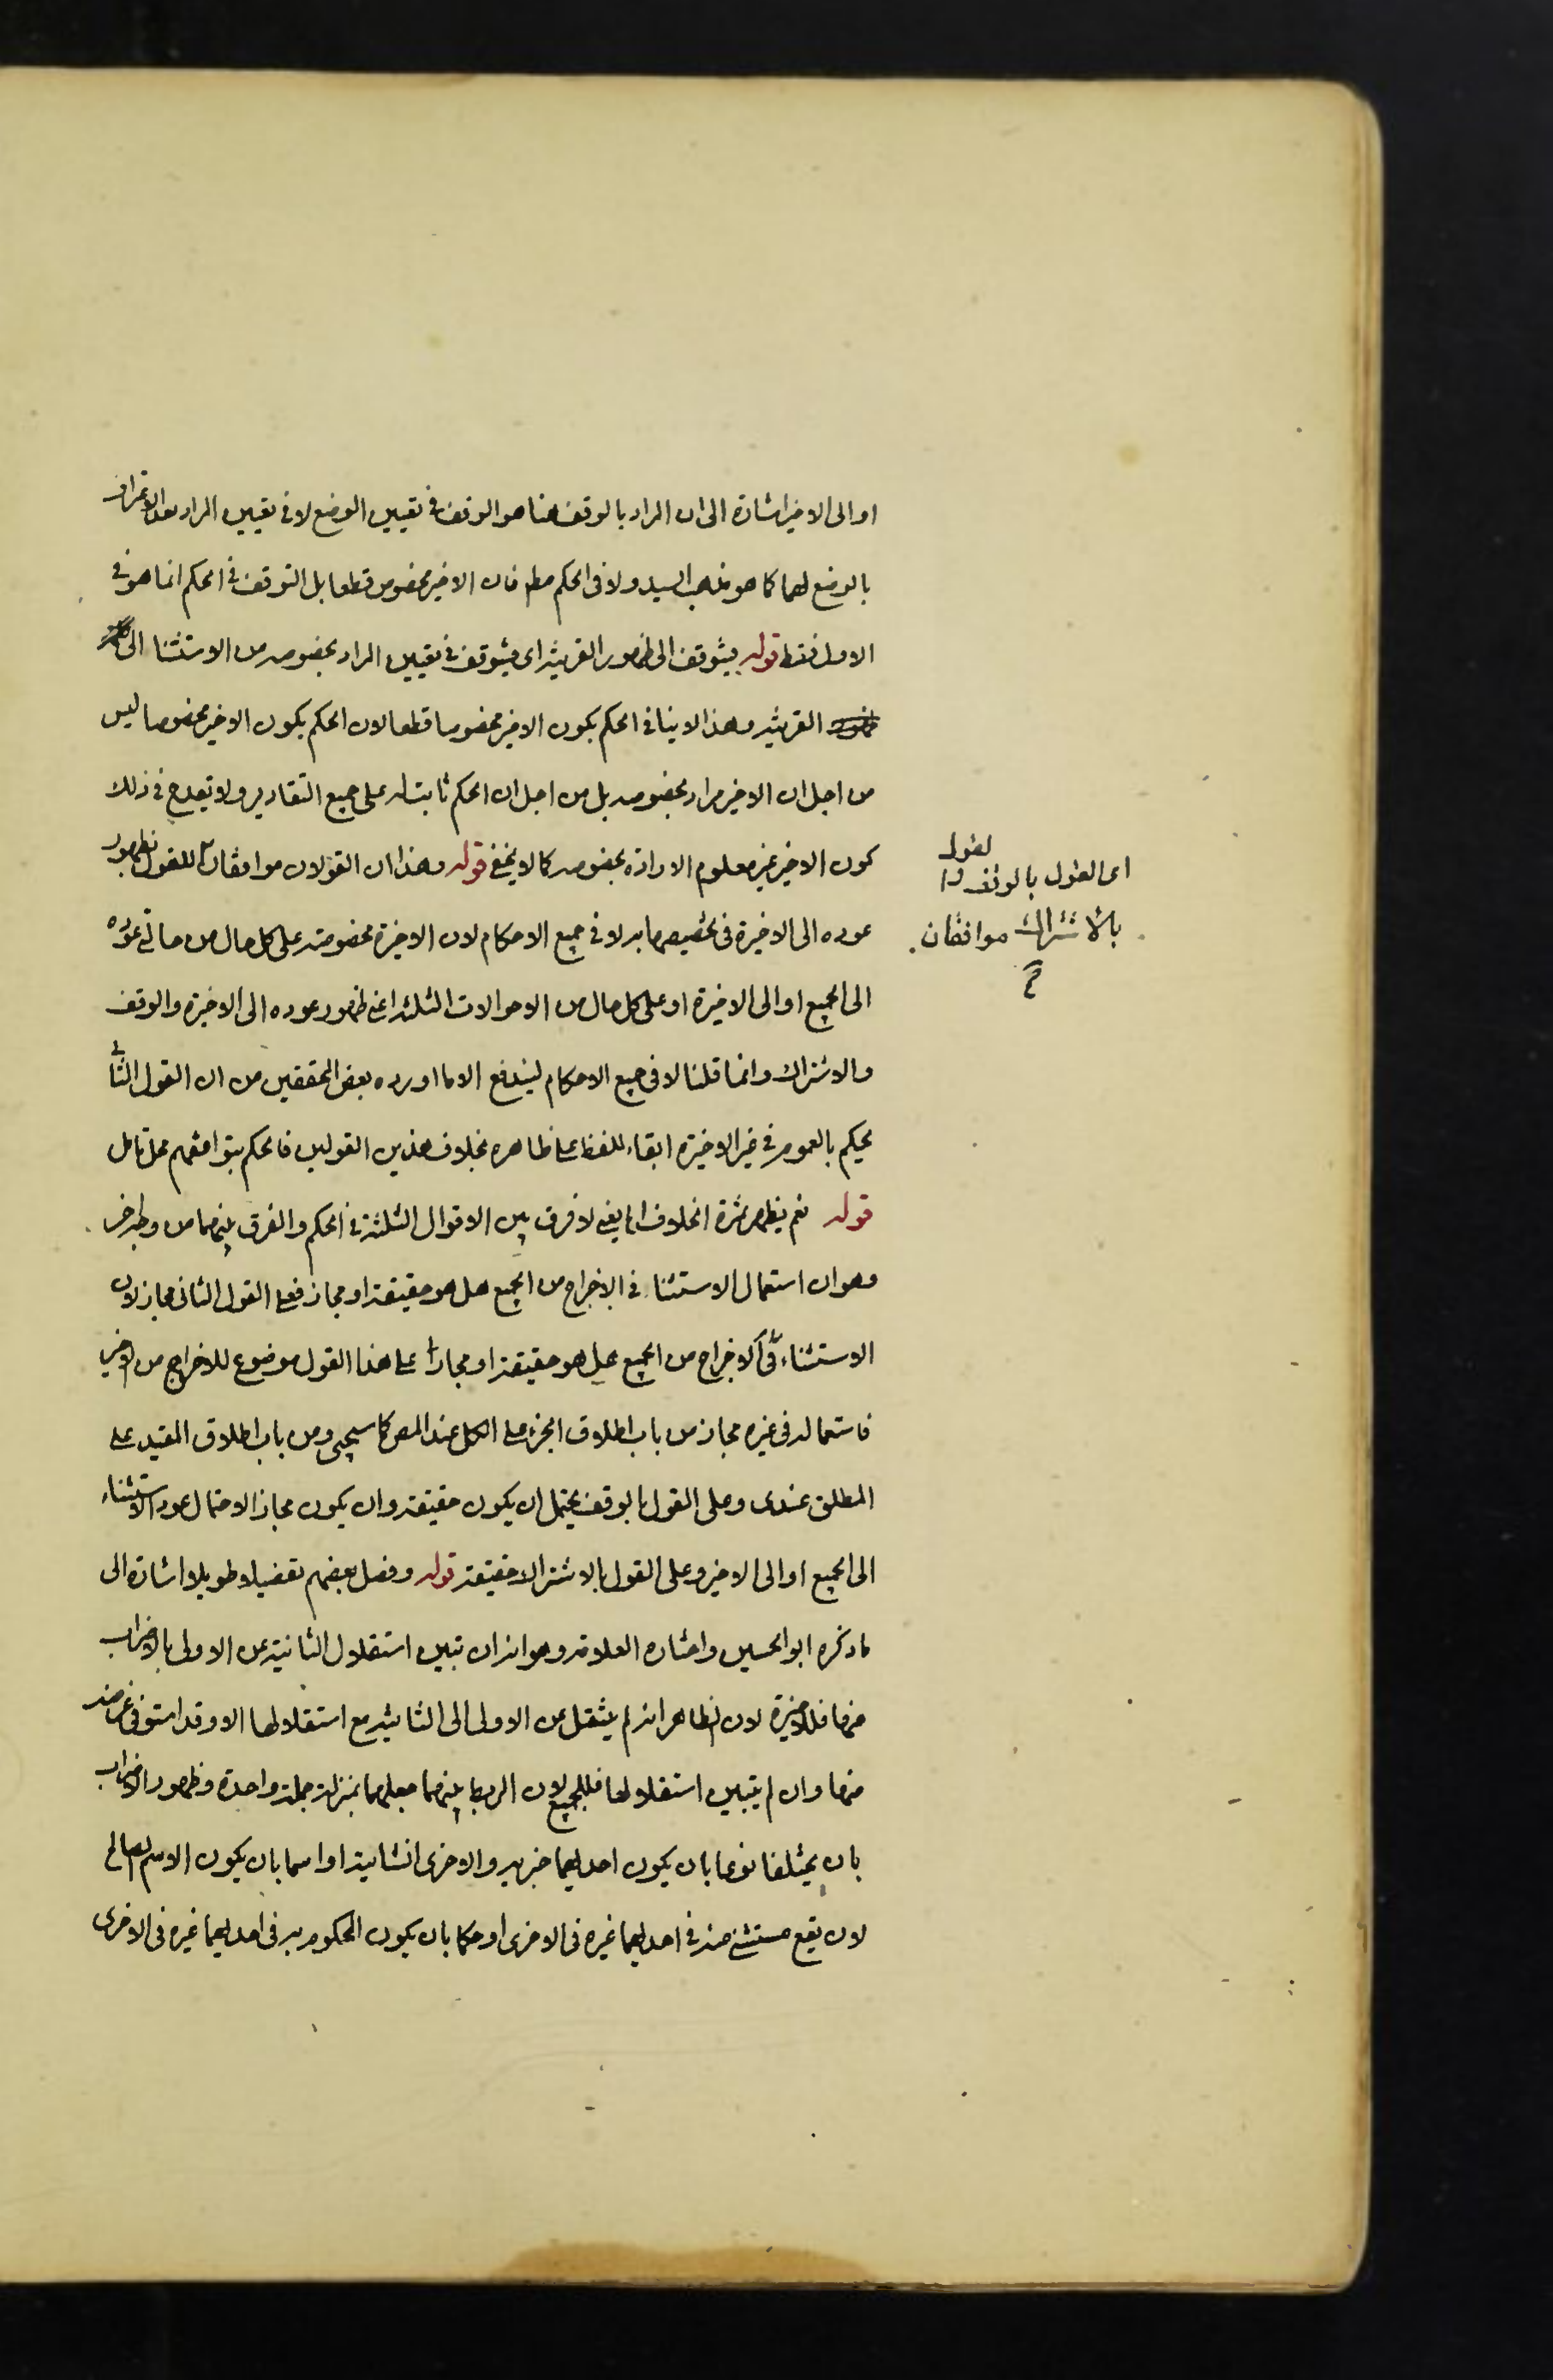 او الى الاخير اشارة الى ان المراد بالوقف هنا هو الوقف في تعيين الوضع لا في تعيين المراد بعد الاعتراف
بالوضع لهما كما هو مذهب السيد ولا في الحكم مطم فان الاخير مخصوص قطعا بل التوقف في الحكم انما هو في
الاول فقط قوله فيتوقف الى ظهور القرينة اى فيتوقف في تعيين المراد بخصوصه من الاستثنا الى
القرينة وهذا لا ينافي الحكم بكون الاخير مخصوصا قطعا لان الحكم بكون الاخير مخصوصا ليس
من اجل ان الاخير مراد بخصوصه بل من اجل ان الحكم ثابت له على جميع التقادير ولا يقدح في ذلك
كون الاخير غير معلوم الارادة بخصوصه كما لا يخفى قوله وهذان القولان موافقان للقول بظهور
عوده الى الاخيرة في تخصيصها به لا في جميع الاحكام لان الاخيرة مخصوصة على كل حال من حالتي عوده
الى الجميع او الى الاخيرة او على كل حال من الاحوالات الثلثة اعنى ظهور عوده الى الاخيرة والوقف
والاشتراك وانما قلنا لا في جميع الاحكام ليندفع الا ما اورده بعض المحققين من ان القول الثاني
يحكم بالعموم في غير الاخيرة ابقاء للفظ على ظاهره بخلاف هذين القولين فالحكم بتوافقهم محل تامل
قوله نعم يظهر ثمرة الخلاف اه يعنى لا فرق بين الاقوال الثلثة في الحكم والفرق بينهما من وجه اخر
وهو ان استعمال الاستثنا في الاخراج من الجميع هل هو حقيقة او مجاز فعلى القول الثانى مجاز لان
الاستثناء في الاخراج من الجميع هل هو حقيقة او مجاز على هذا القول موضوع للاخراج من الاخير
فاستعماله في غيره مجاز من باب اطلاق الجزء على الكل عند المص كما سيجئ ومن باب اطلاق المقيد على
المطلق عندى وعلى القول بالوقف يحتمل ان يكون حقيقة وان يكون مجازا لاحتمال عود الاستثناء
الى الجميع او الى الاخير وعلى القول بالاشتراك حقيقة قوله وفصل بعضهم تفصيلا طويلا اشارة الى
ما ذكره ابو الحسين واختاره العلامة وهو انه ان تبين استقلال الثانية عن الاولى بالاضراب
عنها فللاخيرة لان الظاهر انه لم ينتقل من الاولى الى الثانية مع استقلالها الا وقد استوفى غرضه
منها وان لم يتبين استقلالها فللجميع لان الربط بينهما جعلهما بمنزلة جملة واحدة وظهور الاضراب
بان يختلفا نوعا بان يكون احديهما خبرية والاخرى انشائية او اسما بان يكون الاسم الصالح
لان يقع مستثنى منه في احديهما غيره في الاخرى او حكما بان يكون المحكوم به في احديهما غيره في الاخرى
اى القول بالوقف والقول
بالاشتراك موافقان